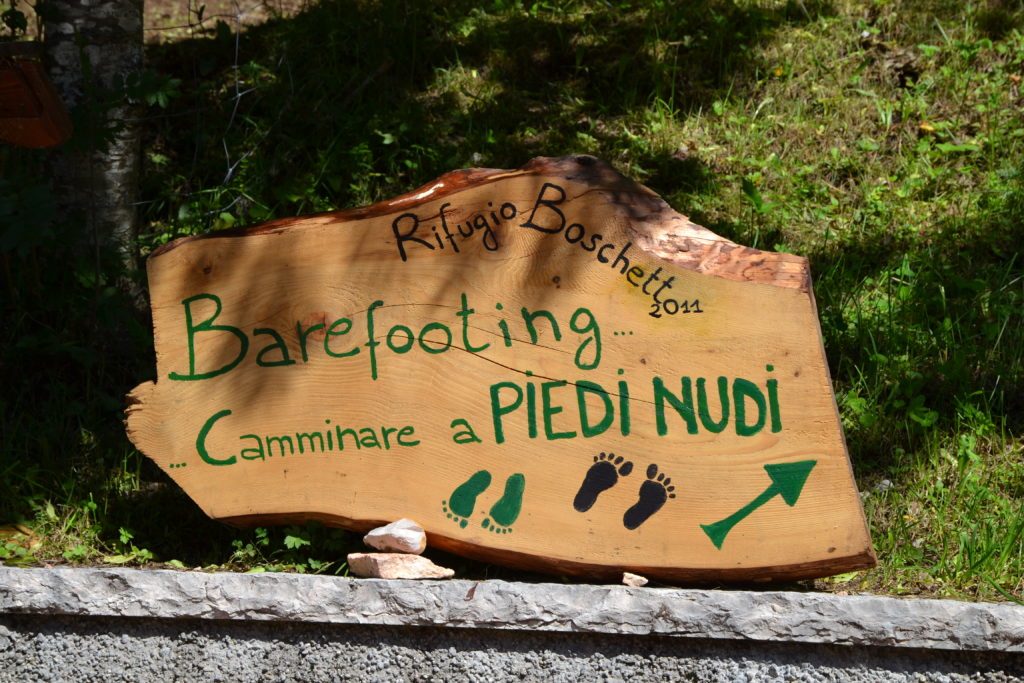 Rifugio Boschett
2011
Barefooting...
...Camminare a PiEDi NUDi